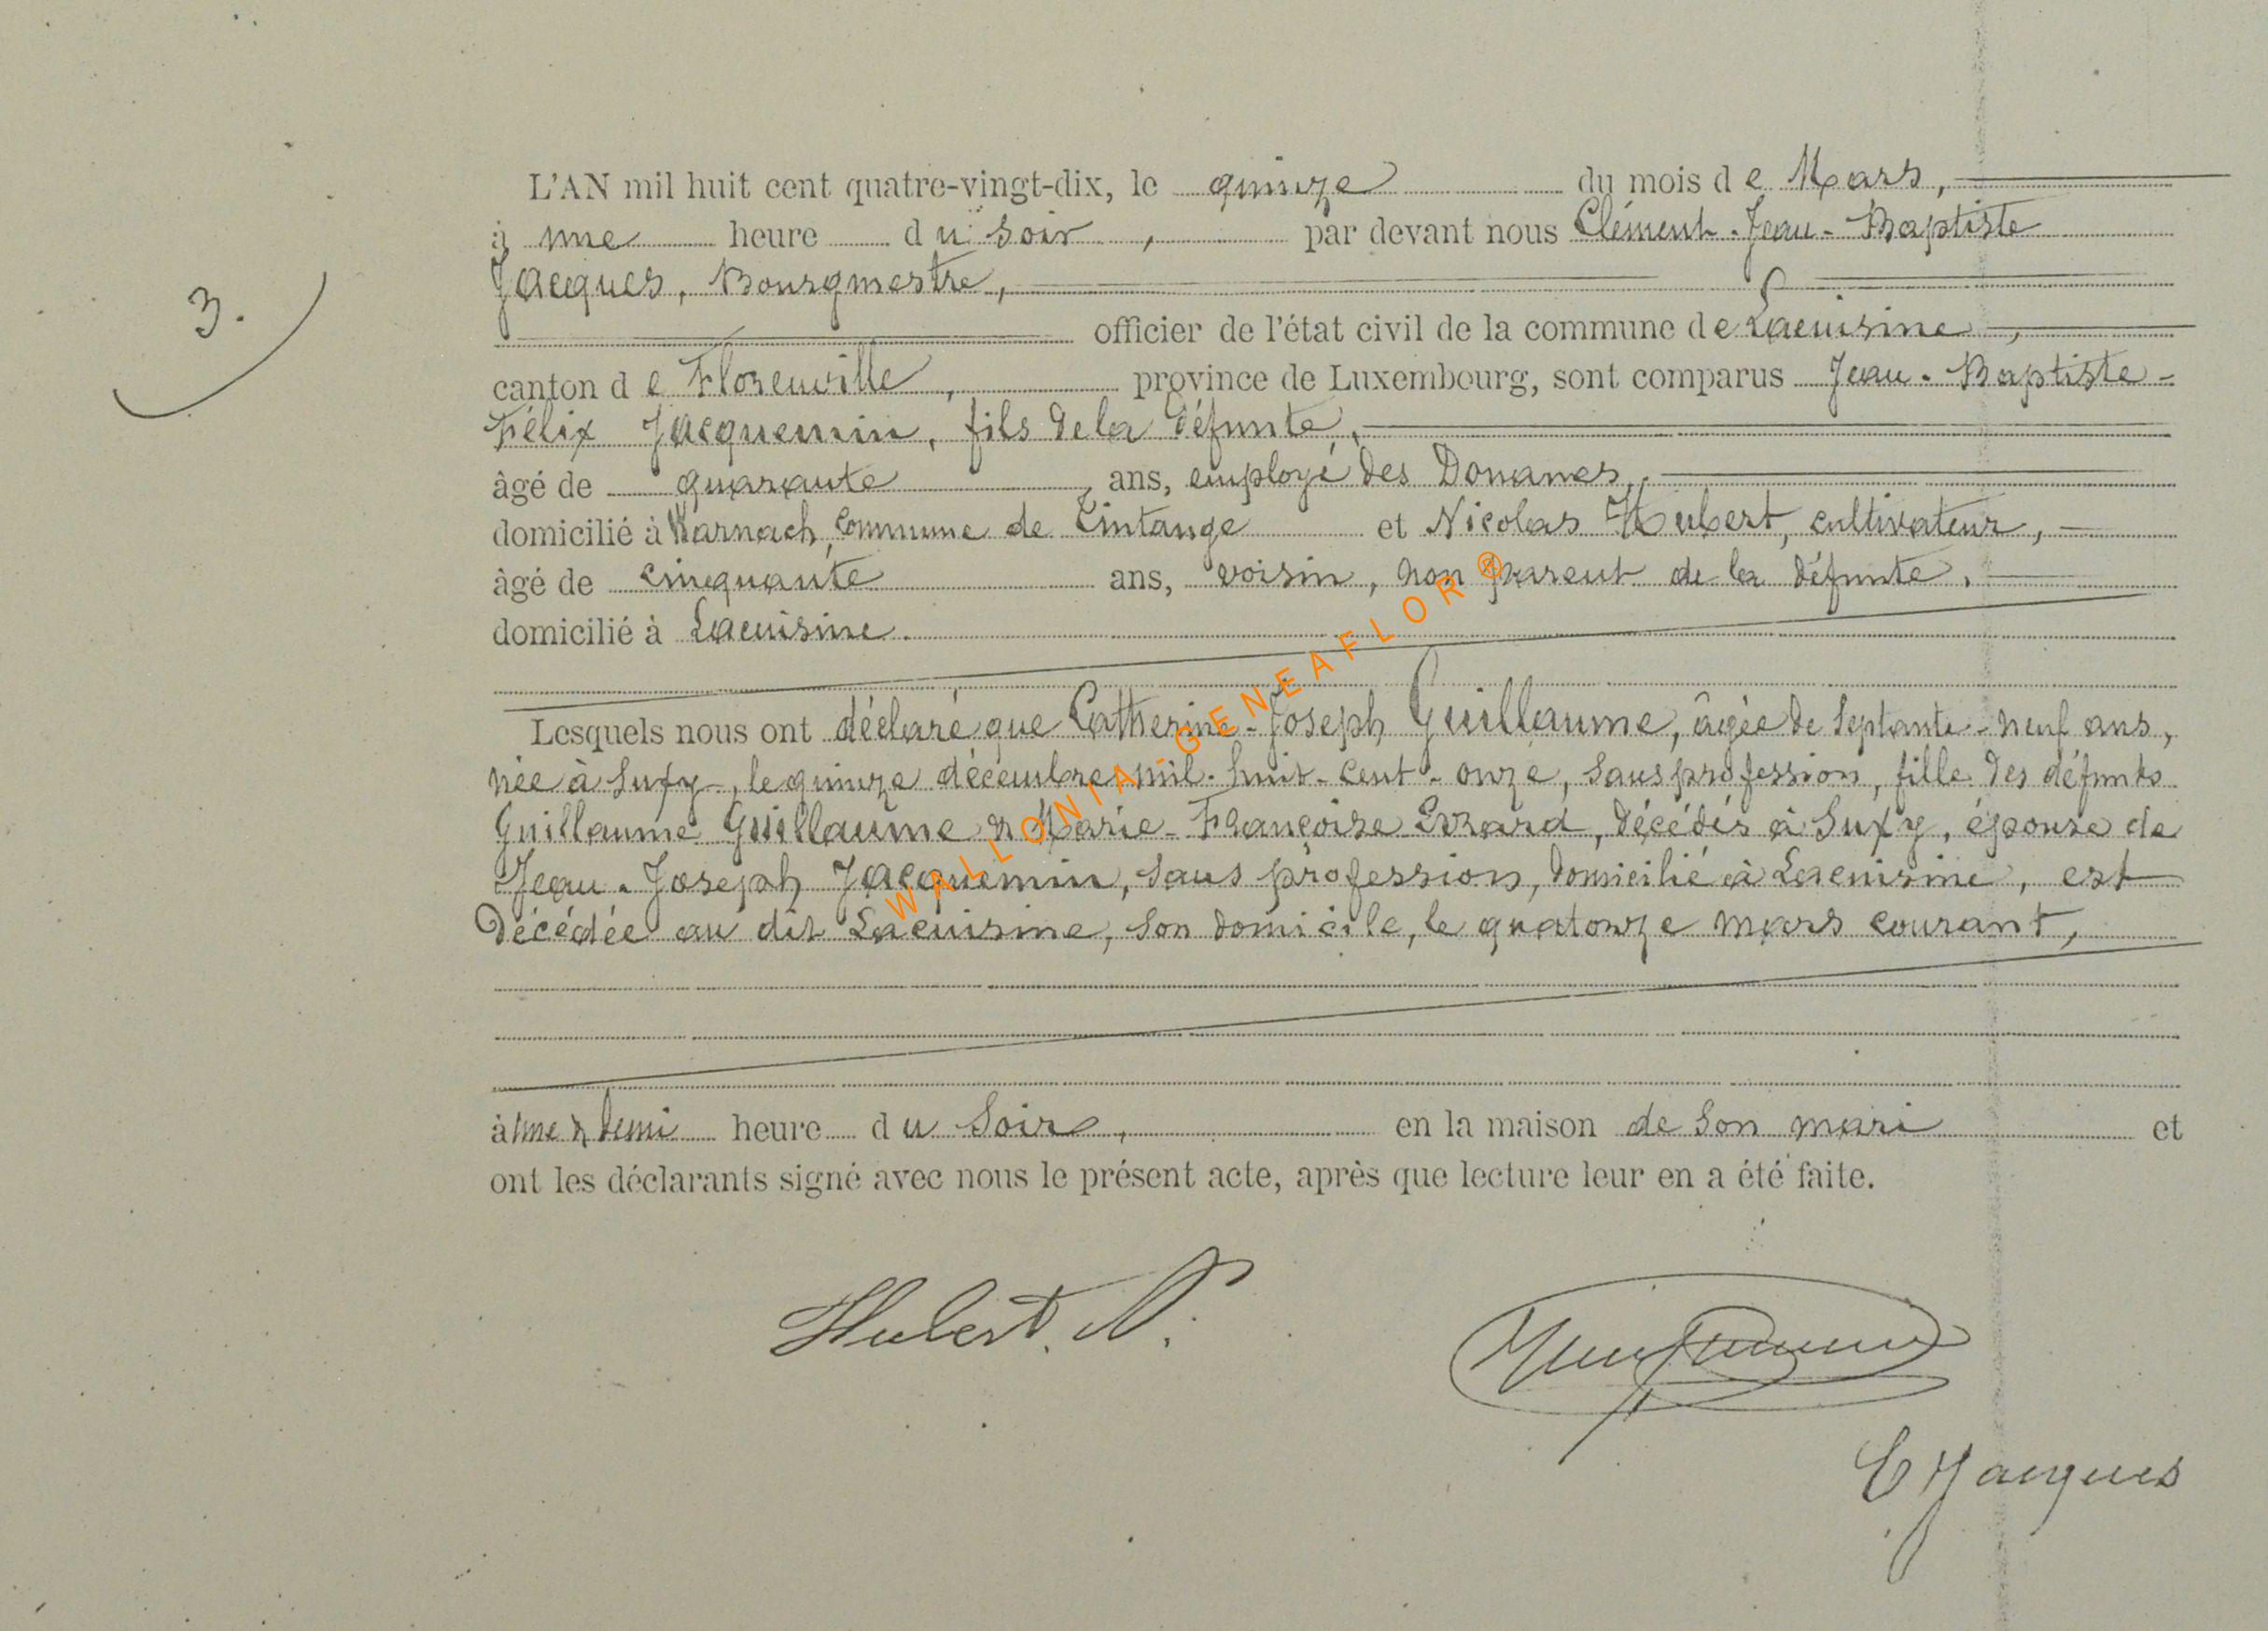 3.
L'AN mil huit cent quatre-vingt-dix, le quinze du mois de Mars,
à une heure du soir, par devant nous Clément-Jean-Baptiste
Jacques, Bourgmestre,
officier de l'état civil de la commune de Lacuisine,
canton de Florenville, province de Luxembourg, sont comparus Jean-Baptiste-
Félix Jacquemin, fils de la défunte,
âgé de quarante ans, employé des Douanes,
domicilié à Warnach, Commune de Tintange et Nicolas Hubert, cultivateur,
âgé de cinquante ans, voisin, non parent de la défunte,
domicilié à Lacuisine.
Lesquels nous ont déclaré que Catherine-Joseph Guillaume, âgée de septante-neuf ans,
née à Suxy, le quinze décembre mil-huit-cent-onze, sans profession, fille des défunts
Guillaume Guillaume & Marie-Françoise Evrard, décédés à Suxy, épouse de
Jean-Joseph Jacquemin, sans profession, domicilié à Lacuisine, est
décédée au dit Lacuisine, son domicile, le quatorze mars courant,
à une & demi heure du soir, en la maison de son mari et
ont les déclarants signé avec nous le présent acte, après que lecture leur en a été faite.
Hubert. N.
CJJacques
WALLONIA - GENEAFLOR ®